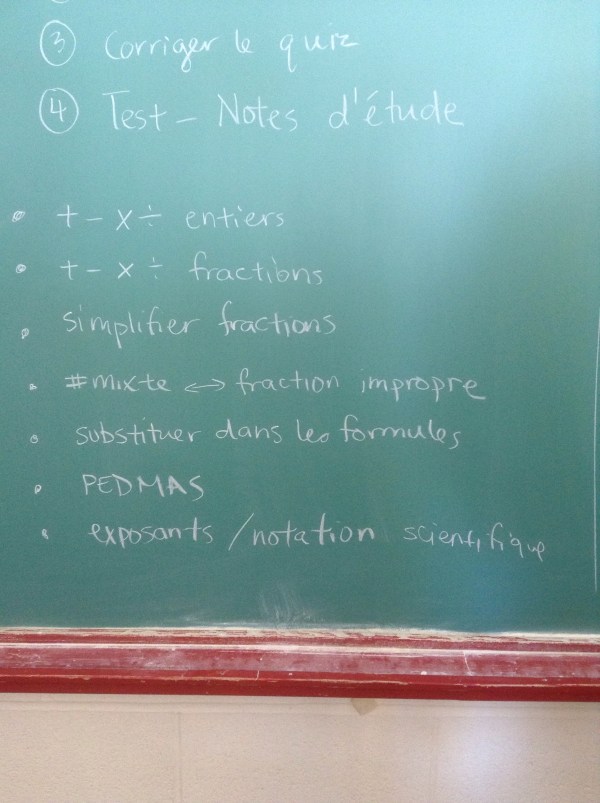 ③ Corriger le quiz
④ Test - Notes d'étude
• + - x ÷ entiers
• + - x ÷ fractions
• simplifier fractions
• #mixte ↔ fraction impropre
• substituer dans les formules
• PEDMAS
• exposants / notation scientifique